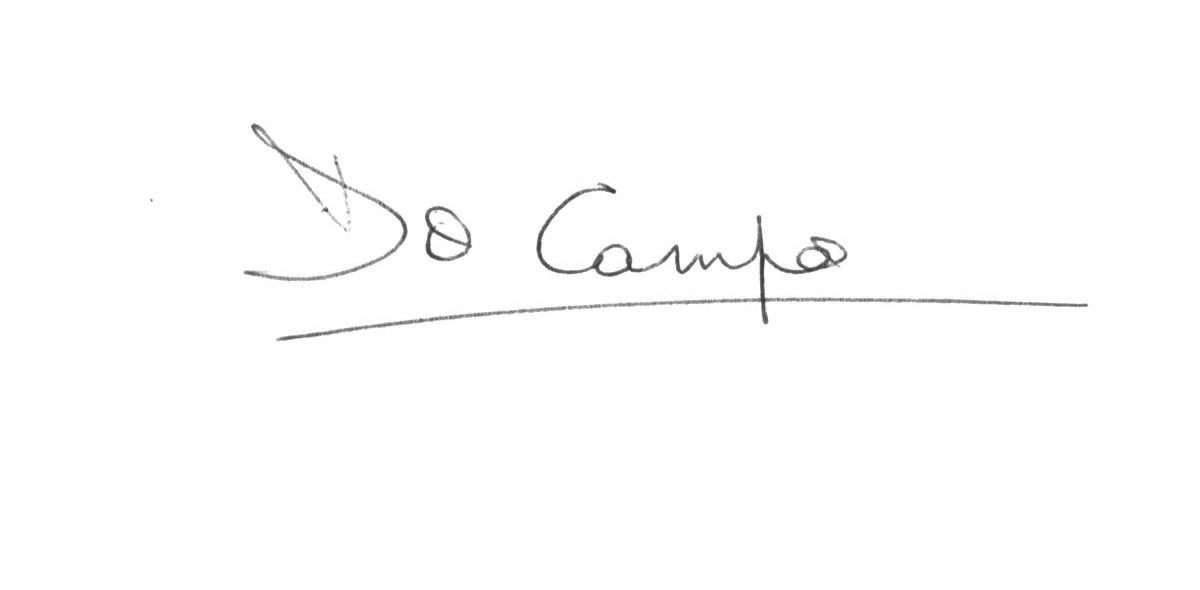 Do Campo